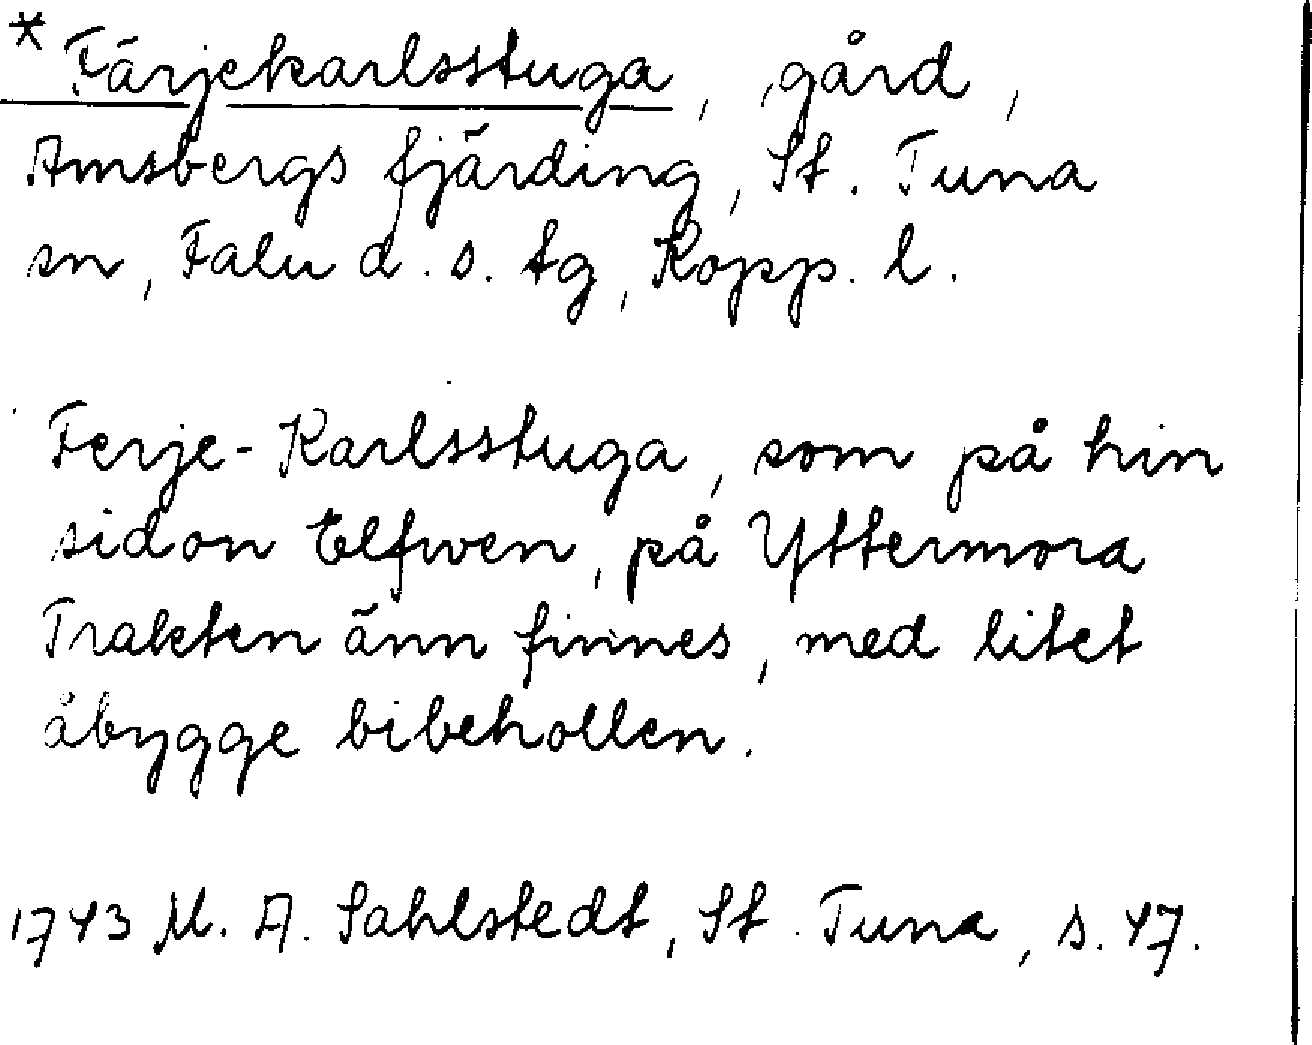 * Färjekarlsstuga, gård,
Amsbergs fjärding, St. Tuna
sn, Falu d. s. tg, Kopp. l.
Ferje-Karlsstuga, som på hin
sidon Elfwen, på Yttermora
Trakten änn finnes, med litet
åbygge bibehollen.
1743 M. A. Sahlstedt, St. Tuna, s. 47.